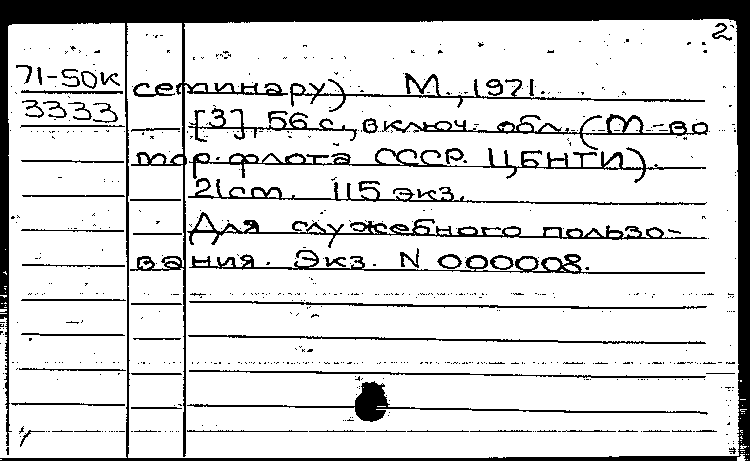 2
71-50к семинару). М., 1971.
3333 [3], 56 с., включ. обл. (М-во
мор. флота СССР. ЦБНТИ).
21 см. 115 экз.
Для служебного пользо-
вания. Экз. N 000008.